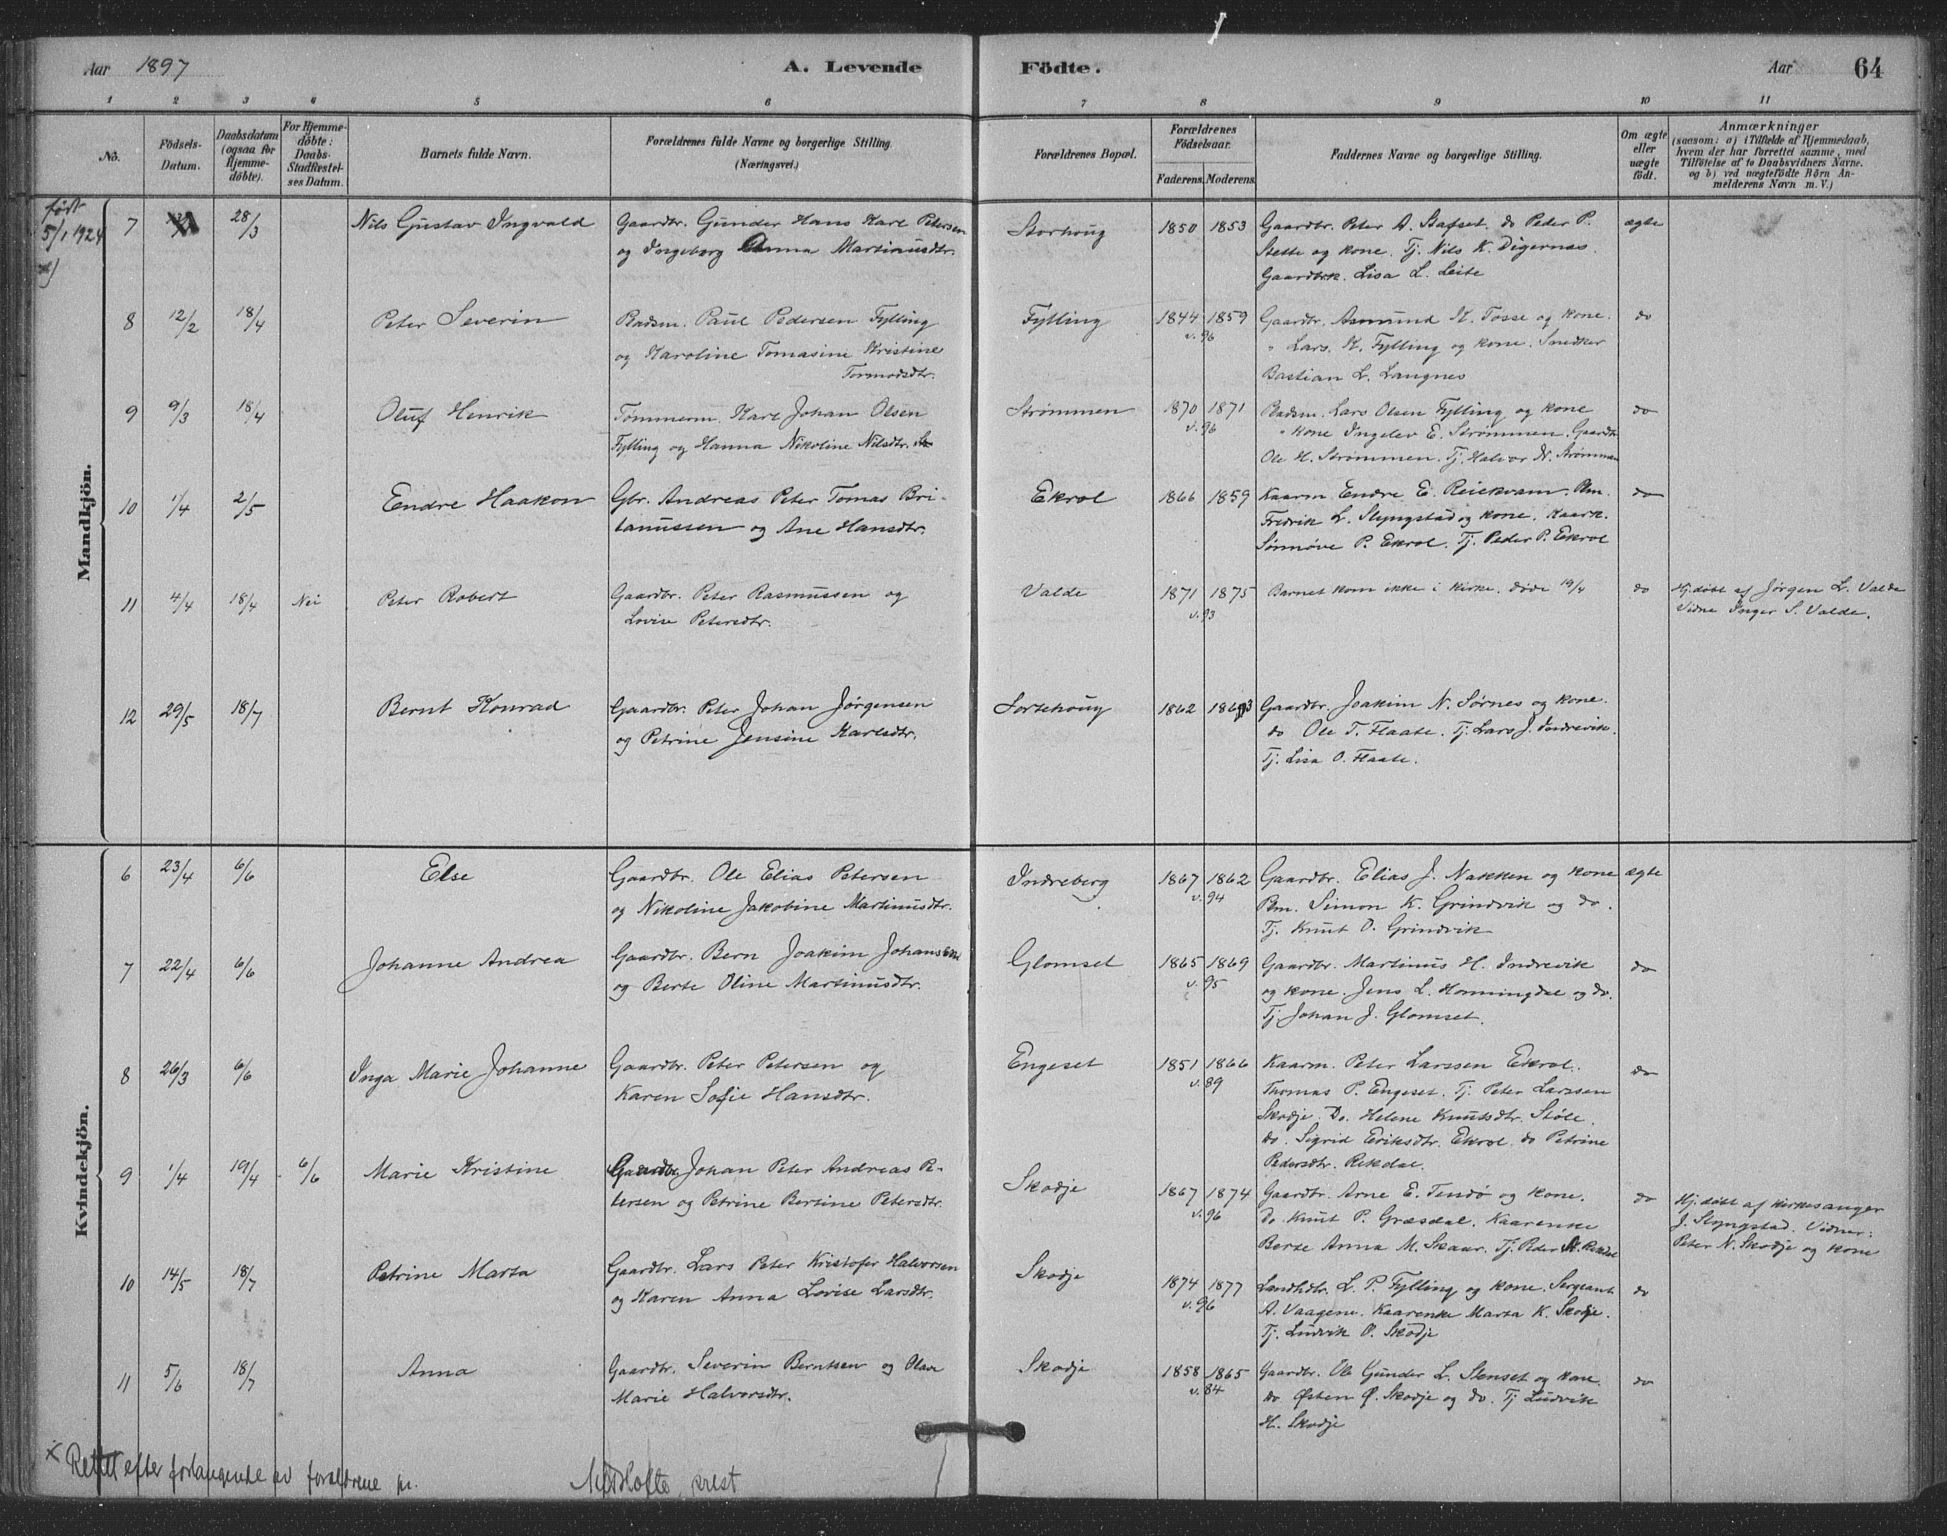 Aar 1897 A. Levende Födte. Aar 64
1 2 3 6 5 6 7 8 9 10 11
No. Födsels-Datum. Daabsdatum (ogsaa for Hjemme-döbte). For Hjemme-döbte: Daabs-Stadfæstel-ses Datum. Barnets fulde Navn. Forældrenes fulde Navne og borgerlige Stilling. (Næringsvei.) Forældrenes Bopæl. Forældrenes Födselsaar. Faderens. Moderens. Faddernes Navne og borgerlige Stilling. Om ægte eller uægte födt. Anmærkninger (saasom: a) i Tilfælde af Hjemmedaab, hvem der har forrettet samme, med Tilföielse af to Daabsvidners Navne. og b) ved uægtefödte Börn An-melderens Navn m. V.)
født
5/1 1924
Mandkjön.
7 28/3 Nils Gustav Ingvald Gaardbr. Gunder Hans Karl Petersen Storhoug 1850 1853 Gaardbr. Peter A. Stafset. do Peder P. ægte
og Ingeborg Anna Martinusdtr. Stette og kone. Tj. Nils K. Digernæs.
Lisa L. Leite
8 12/2 18/4 Peter Severin Baadsm. Paul Pedersen Fylling Fylling 1844 1859 Gaardbr. Asmund K. Tosse og kone. do
v. 96 " Lars K. Fylling og kone. Snedker
og Karoline Tomasine Kristine
Tormodsdtr. Bastian L. Langnes
9 9/3 18/4 Oluf Henrik Tømmerm. Karl Johan Olsen Strømmen 1870 1871 Baadsm. Lars Olsen Fylling og kone do
v. 96 " kone Ingelev E. Strømmen. Gaardbr
Fylling og Hanna Nikoline Nilsdtr. Ole H. Strømmen. Tj. Halvor N. Strømmen
10 1/4 2/5 Endre Haakon Gbr. Andreas Peter Tomas Bri- Ekrol 1866 1859 Kaarm. Endre E. Reiekvam. Um. do
tanussen og Ane Hansdtr. Fredrik L. Slyngstad og kone. Kaark.
Sønnøve P. Ekrol. Tj. Peder P. Ekrol
11 4/4 18/4 Nei Peter Robert Gaardbr. Peter Rasmussen og Valde 1871 1875 Barnet kom ikke i kirke, døde 19/4 do Hj. døbt af Jørgen L. Valde
Lovise Petersdtr. v. 93 Vidne Inger S. Valde.
12 29/5 18/7 Bernt Konrad Gaardbr. Peter Johan Jørgensen Sortehoug 1862 1863 Gaardbr. Joakim N. Sørnes og kone.
og Petrine Jensine Karlsdtr. do Ole T. Flaate. Tj. Lars J. Indrevik.
Tj. Lisa O. Flaate.
Kvindekjön.
6 23/4 6/6 Else Gaardbr. Ole Elias Petersen Indreberg 1867 1862 Gaardbr. Elias J. Nakken og kone ægte
og Nikoline Jakobine Martinusdtr. v. 94 Bm. Simon K. Grindvik og do.
Tj. Knut O. Grindvik
7 22/4 6/6 Johanne Andrea Gaardbr. Bern Joakim Johansen Glomset 1865 1869 Gaardbr. Martinus H. Indrevik do
og Berte Oline Martinusdtr. v. 95 og kone. Jens L. Honningdal og do.
Tj. Johan J. Glomset.
8 26/3 6/6 Inga Marie Johanne Gaardbr. Peter Petersen og Engeset 1851 1866 Kaarm. Peter Larssen Ekrol. do
Karen Sofie Hansdtr. v. 89 Thomas P. Engeset. Tj. Peter Larssen
Skodje. Do. Helene Knutsdtr. Støle
do. Sigrid Eriksdtr. Ekrol. do Petrine
Pedersdtr. Rekdal.
9 1/4 19/4 6/6 Marie Kristine Gaardbr Johan Peter Andreas Pe- Skodje 1867 1874 Gaardbr. Arne E. Tendø og kone. do Hj. døbt af kirkesanger
tersen og Petrine Bertine Petersdtr. v. 96 Do. Knut P. Græsdal. Kaarenke J. Slyngstad. Vidner:
Berte Anna M. Skaar. Tj. Peder Rekdal Peter N. Skodje og kone
10 14/5 18/7 Petrine Marta Gaardbr. Lars Peter Kristofer Halvorsen Skodje 1874 1877 Landhdlr. L. P. Fylling og kone. Sergeant do
og Karen Anna Lovise Larsdtr. v. 96 A. Vaagene. Kaarenke Marta K. Skodje.
Tj. Ludvik O. Skodje
11 5/6 18/7 Anna Gaardbr. Severin Berntsen og Olave Skodje 1858 1865 Gaardbr. Ole Gunder L. Stenset og kone. do
Marie Halvorsdtr. v. 84 do Østen Ø. Skodje og do. Tj Ludvik
H. Skodje
x Rettet efter forlangende av forældrene pr. Hofte, prest